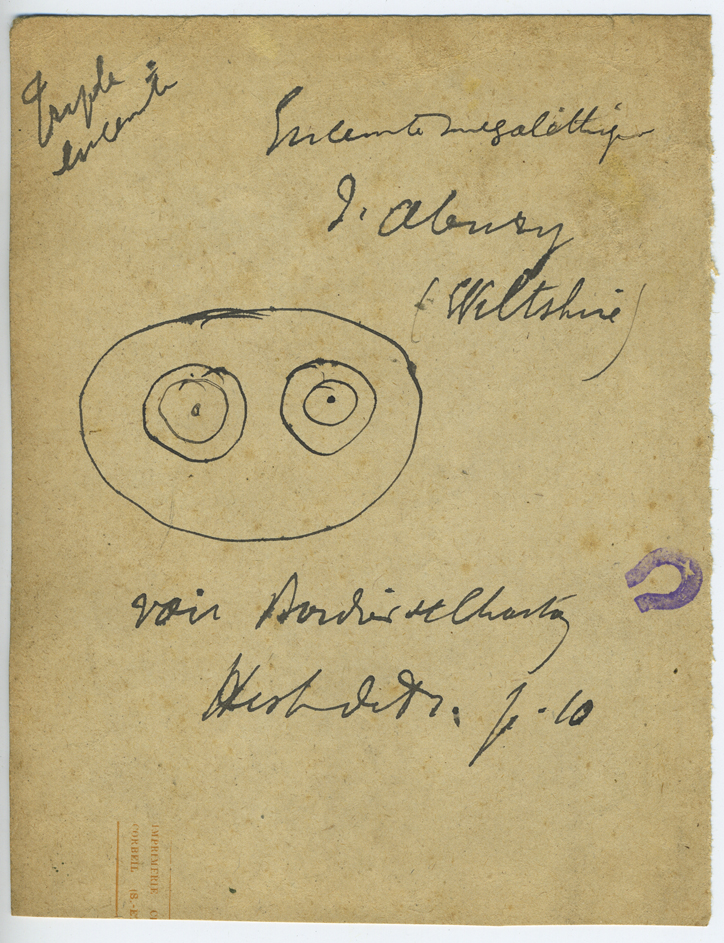 Triple
enceinte
Enceinte mégalithique
d'Abury
(Wiltshire)
voir Bordier et Charton
Hist de Fr. p. 10
IMPRIMERIE C
CORBEIL (S.-E